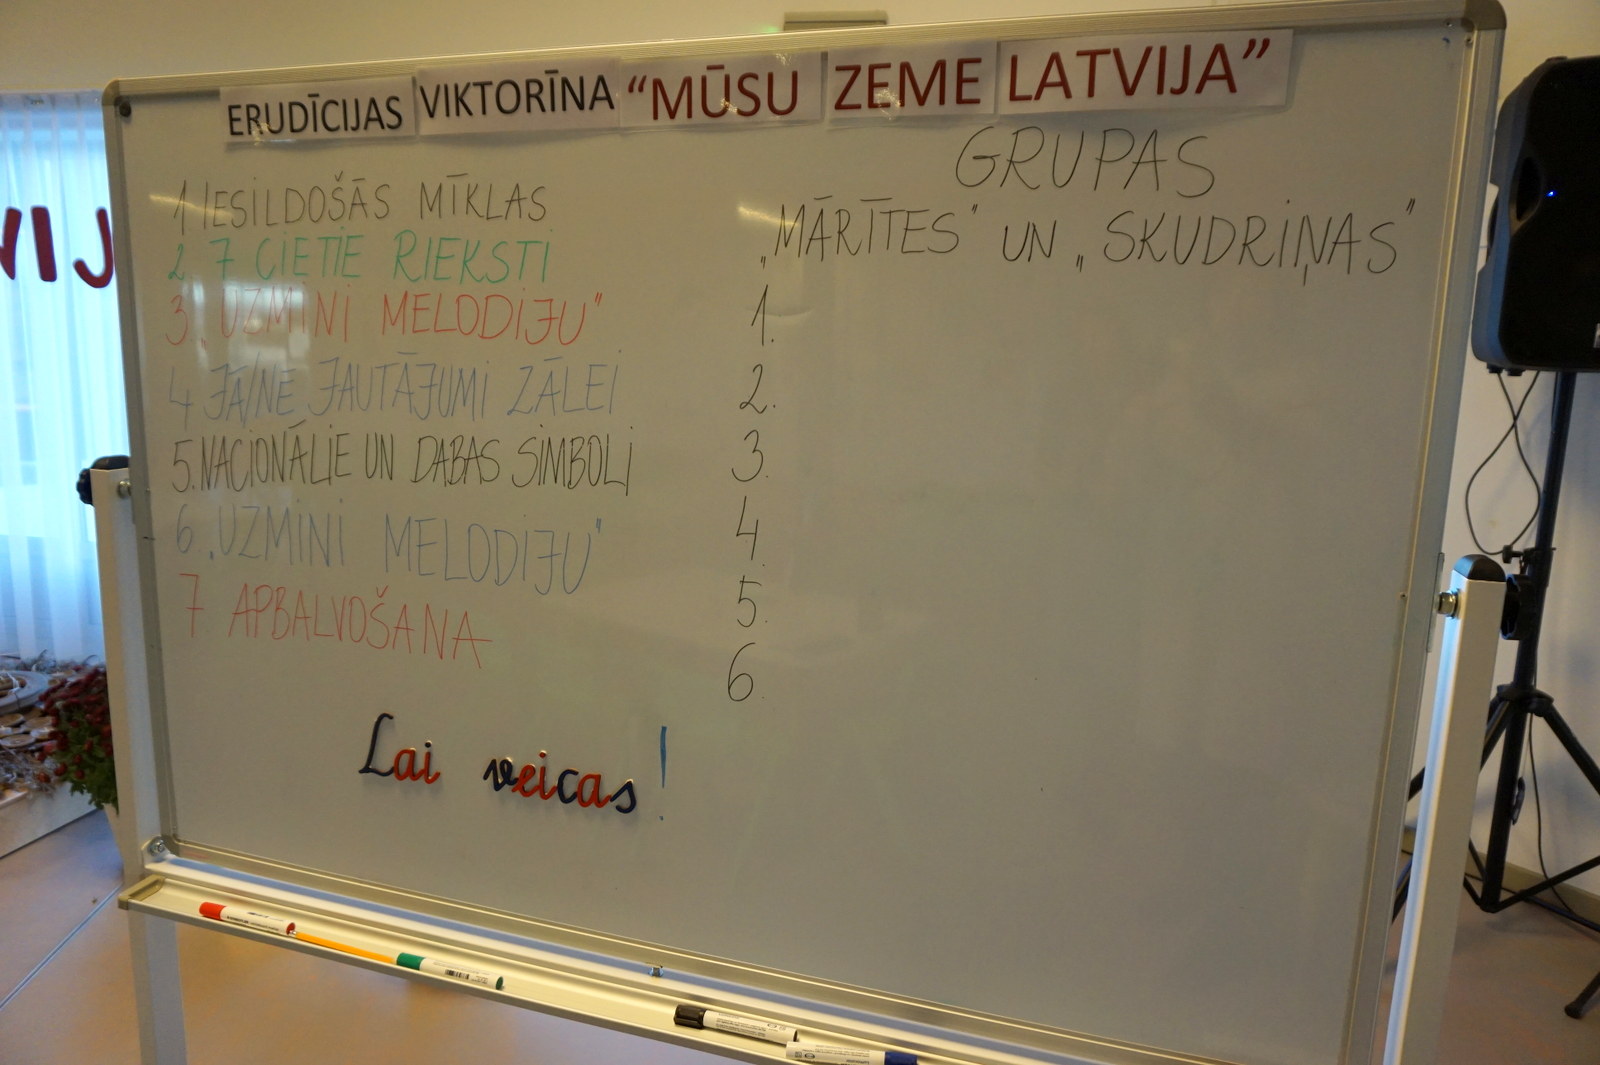 ERUDĪCIJAS VIKTORĪNA “MŪSU ZEME LATVIJA”
1 IESILDOŠĀS MĪKLAS
2. 7 CIETIE RIEKSTI
3. „UZMINI MELODIJU"
4 JĀ/NĒ JAUTĀJUMI ZĀLEI
5. NACIONĀLIE UN DABAS SIMBOLI
6. „UZMINI MELODIJU"
7 APBALVOŠANA
Lai veicas!
GRUPAS
„MĀRĪTES" UN „SKUDRIŅAS"
1.
2.
3.
4.
5.
6.